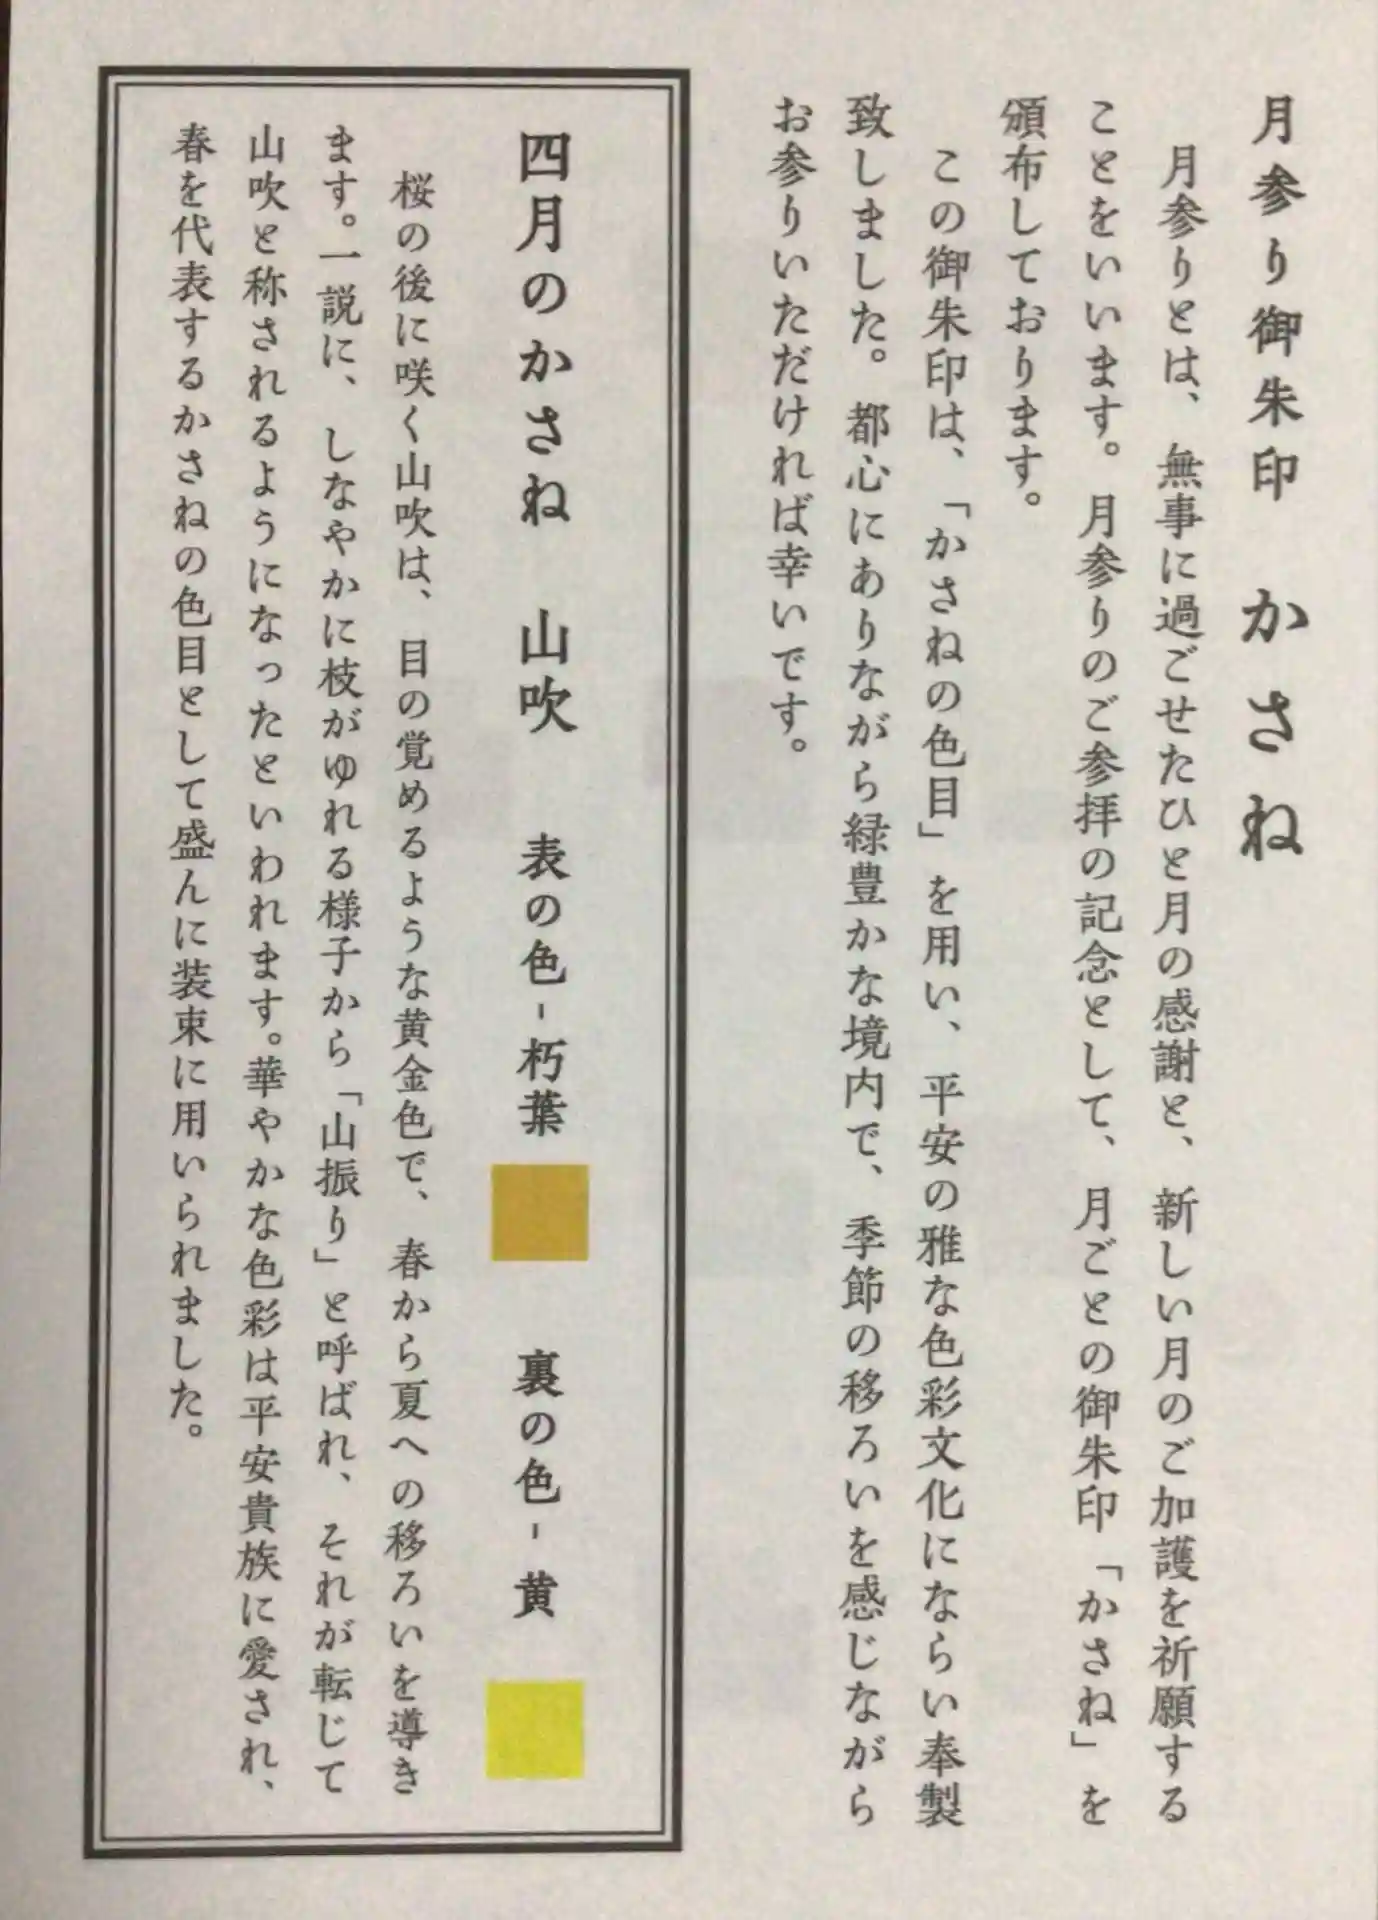 月参り御朱印　かさね
月参りとは、無事に過ごせたひと月の感謝と、新しい月のご加護を祈願する
ことをいいます。月参りのご参拝の記念として、月ごとの御朱印「かさね」を
頒布しております。
この御朱印は、「かさねの色目」を用い、平安の雅な色彩文化にならい奉製
致しました。都心にありながら緑豊かな境内で、季節の移ろいを感じながら
お参りいただければ幸いです。
四月のかさね　山吹　表の色-朽葉　裏の色-黄
桜の後に咲く山吹は、目の覚めるような黄金色で、春から夏への移ろいを導き
ます。一説に、しなやかに枝がゆれる様子から「山振り」と呼ばれ、それが転じて
山吹と称されるようになったといわれます。華やかな色彩は平安貴族に愛され、
春を代表するかさねの色目として盛んに装束に用いられました。